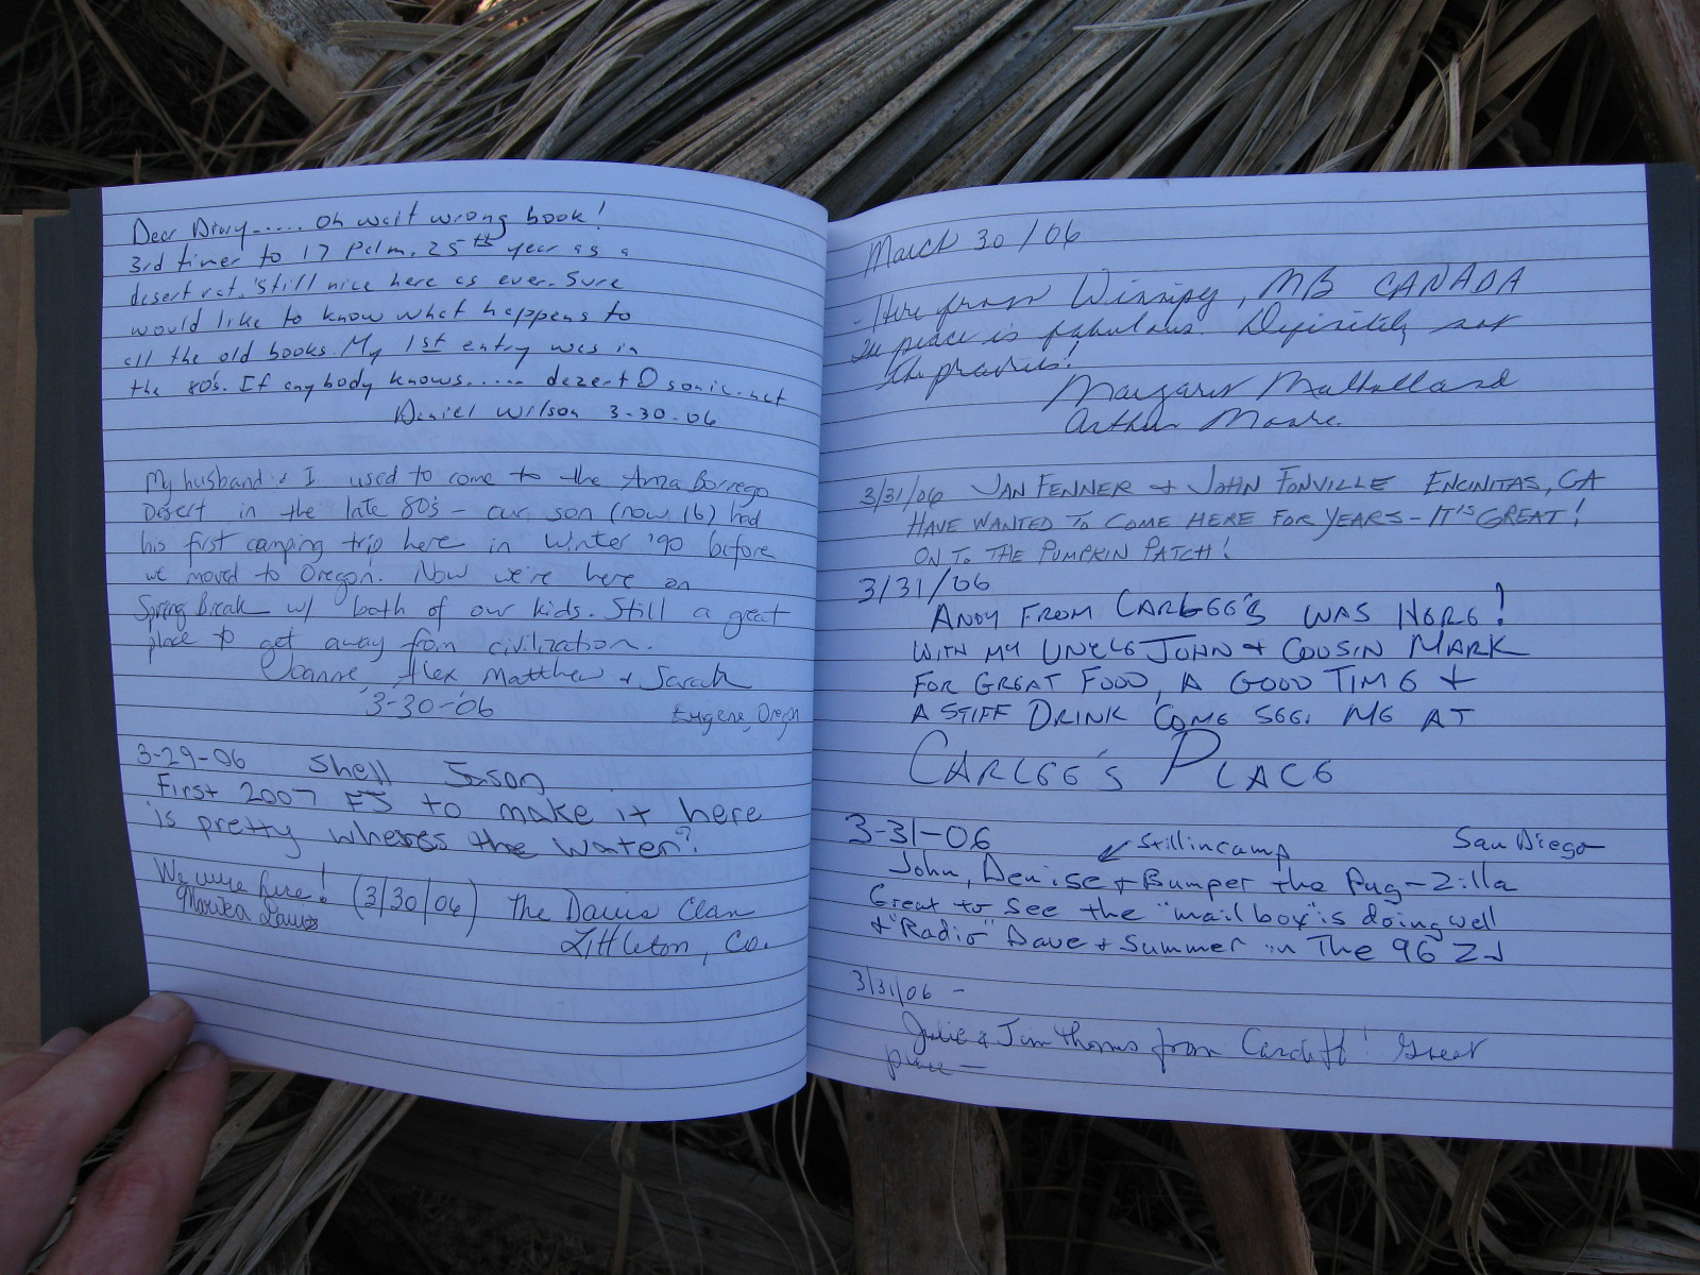 Dear Diary...... Oh wait wrong book!
3rd timer to 17 Palm. 25th year as a
desert rat. Still nice here as ever. Sure
would like to know what happens to
all the old books. My 1st entry was in
the 80's. If anybody knows..... dezert@sonic.net
Daniel Wilson 3-30-06
My husband & I used to come to the Anza Borrego
Desert in the late 80's - our son (now 16) had
his first camping trip here in Winter '90 before
we moved to Oregon. Now we're here on
Spring Break w/ both of our kids. Still a great
place to get away from civilization.
Joanne, Alex Matthew & Sarah
3-30-06 Eugene, Oregon
3-29-06 Shell Jason
First 2007 FJ to make it here
is pretty wheres the water?
We were here! (3/30/06) The Davis Clan
Marika Davis
Littleton, Co.
March 30/06
Here from Winnipeg, MB CANADA
The peace is fabulous. Definitely not
the prairies!
Margaret Mulholland
Arthur Moore.
3/31/06 JAN FENNER + JOHN FONVILLE ENCINITAS, CA
HAVE WANTED TO COME HERE FOR YEARS - IT'S GREAT!
ON TO THE PUMPKIN PATCH!
3/31/06
ANDY FROM CARLEE'S WAS HERE!
WITH MY UNCLE JOHN + COUSIN MARK
FOR GREAT FOOD, A GOOD TIME +
A STIFF DRINK COME SEE ME AT
CARLEE'S PLACE
3-31-06 Still in camp San Diego
John, Denise + Bumper the Pug-Zilla
Great to see the "mailbox" is doing well
+ "Radio" Dave + Summer in The 96 ZJ
3/31/06 -
Julie & Jim Thomas from Cardiff! Great
place -